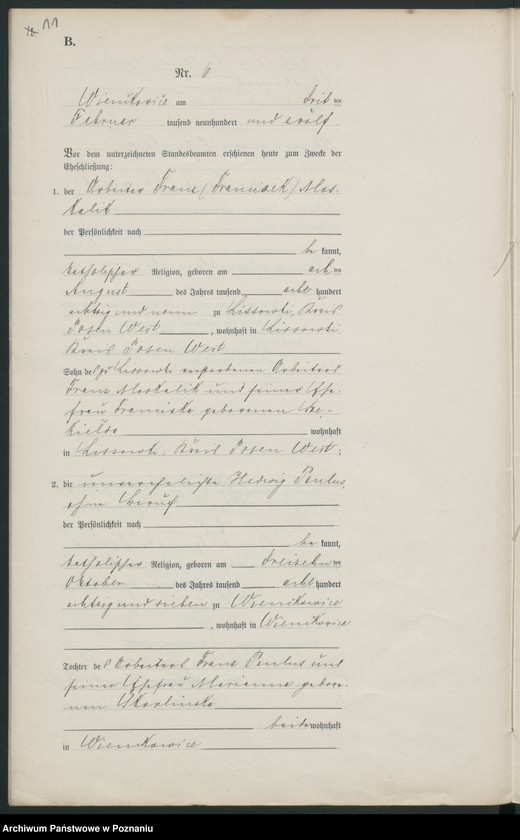 11
B.
Nr. 6
Wienkowice am drit ten
Februar tausend neunhundert und zwölf
Vor dem unterzeichneten Standesbeamten erschienen heute zum Zwecke der
Eheschließung:
1. der Arbeiter Franz (Franciszek) Mos-
kalik
der Persönlichkeit nach
be kannt,
katholischer Religion, geboren am acht ten
August des Jahres tausend acht hundert
achtzig und neun zu Lissowki, Kreis
Posen West, wohnhaft in Lissowki
Kreis Posen West
Sohn des zu Lissowki verstorbenen Arbeiters
Franz Moskalik und seiner Ehe-
frau Franziska geborenen
wohnhaft
in Lissowki, Kreis Posen West;
2. die unverehelichte Hedwig Paulus,
ohne Beruf
der Persönlichkeit nach
be kannt,
katholischer Religion, geboren am dreizehn ten
Oktober des Jahres tausend acht hundert
achtzig und sieben zu Wienkowice
, wohnhaft in Wienkowice
Tochter des Arbeiters Franz Paulus und
seiner Ehefrau Marianna gebore-
nen Skorlinska
beide wohnhaft
in Wienkowice
Archiwum Państwowe w Poznaniu